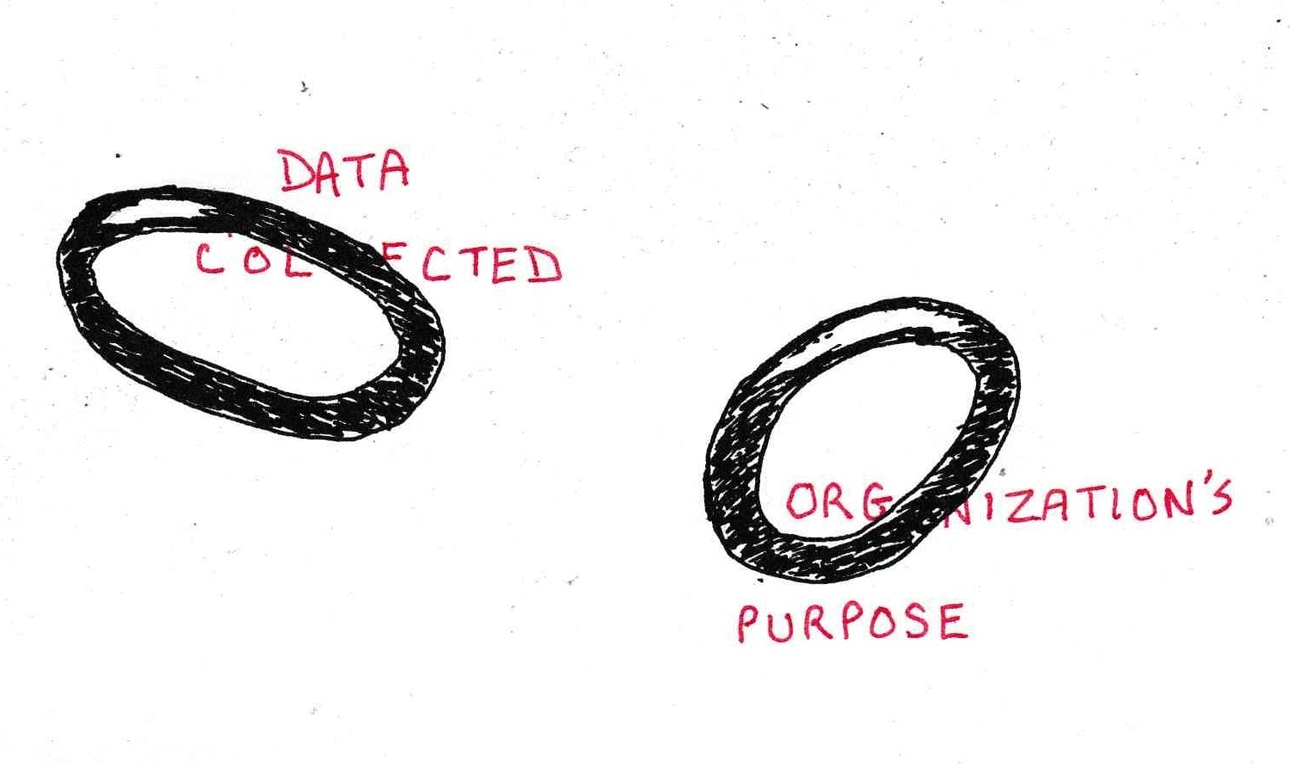 DATA
COLLECTED
ORGANIZATION'S
PURPOSE